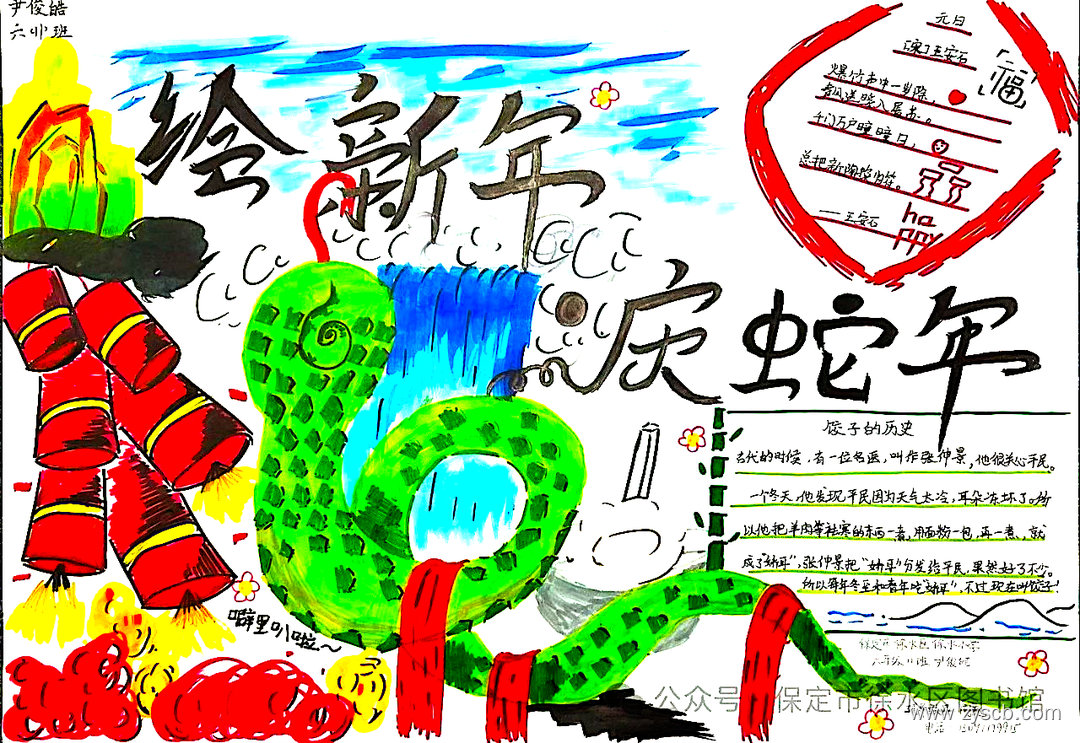 尹俊皓
绘新年
庆蛇年
元日
[宋]王安石
爆竹声中一岁除,
春风送暖入屠苏。
千门万户曈曈日,
总把新桃换旧符。
——王安石
「福」
ha
ppy
噼里叭啦~
饺子的历史
古代的时候,有一位名医,叫作张仲景,他很关心平民。
一个冬天,他发现平民因为天气太冷,耳朵冻坏了。所
以他把羊肉等祛寒的东西一煮,用面粉一包,再一煮,就
成了“娇耳”,张仲景把“娇耳”分发给平民,果然好了不少。
所以每年冬至和春年吃“娇耳”,不过现在叫饺子!
保定市徐水区
公众号 保定市徐水区图书馆
www.zyscb.com